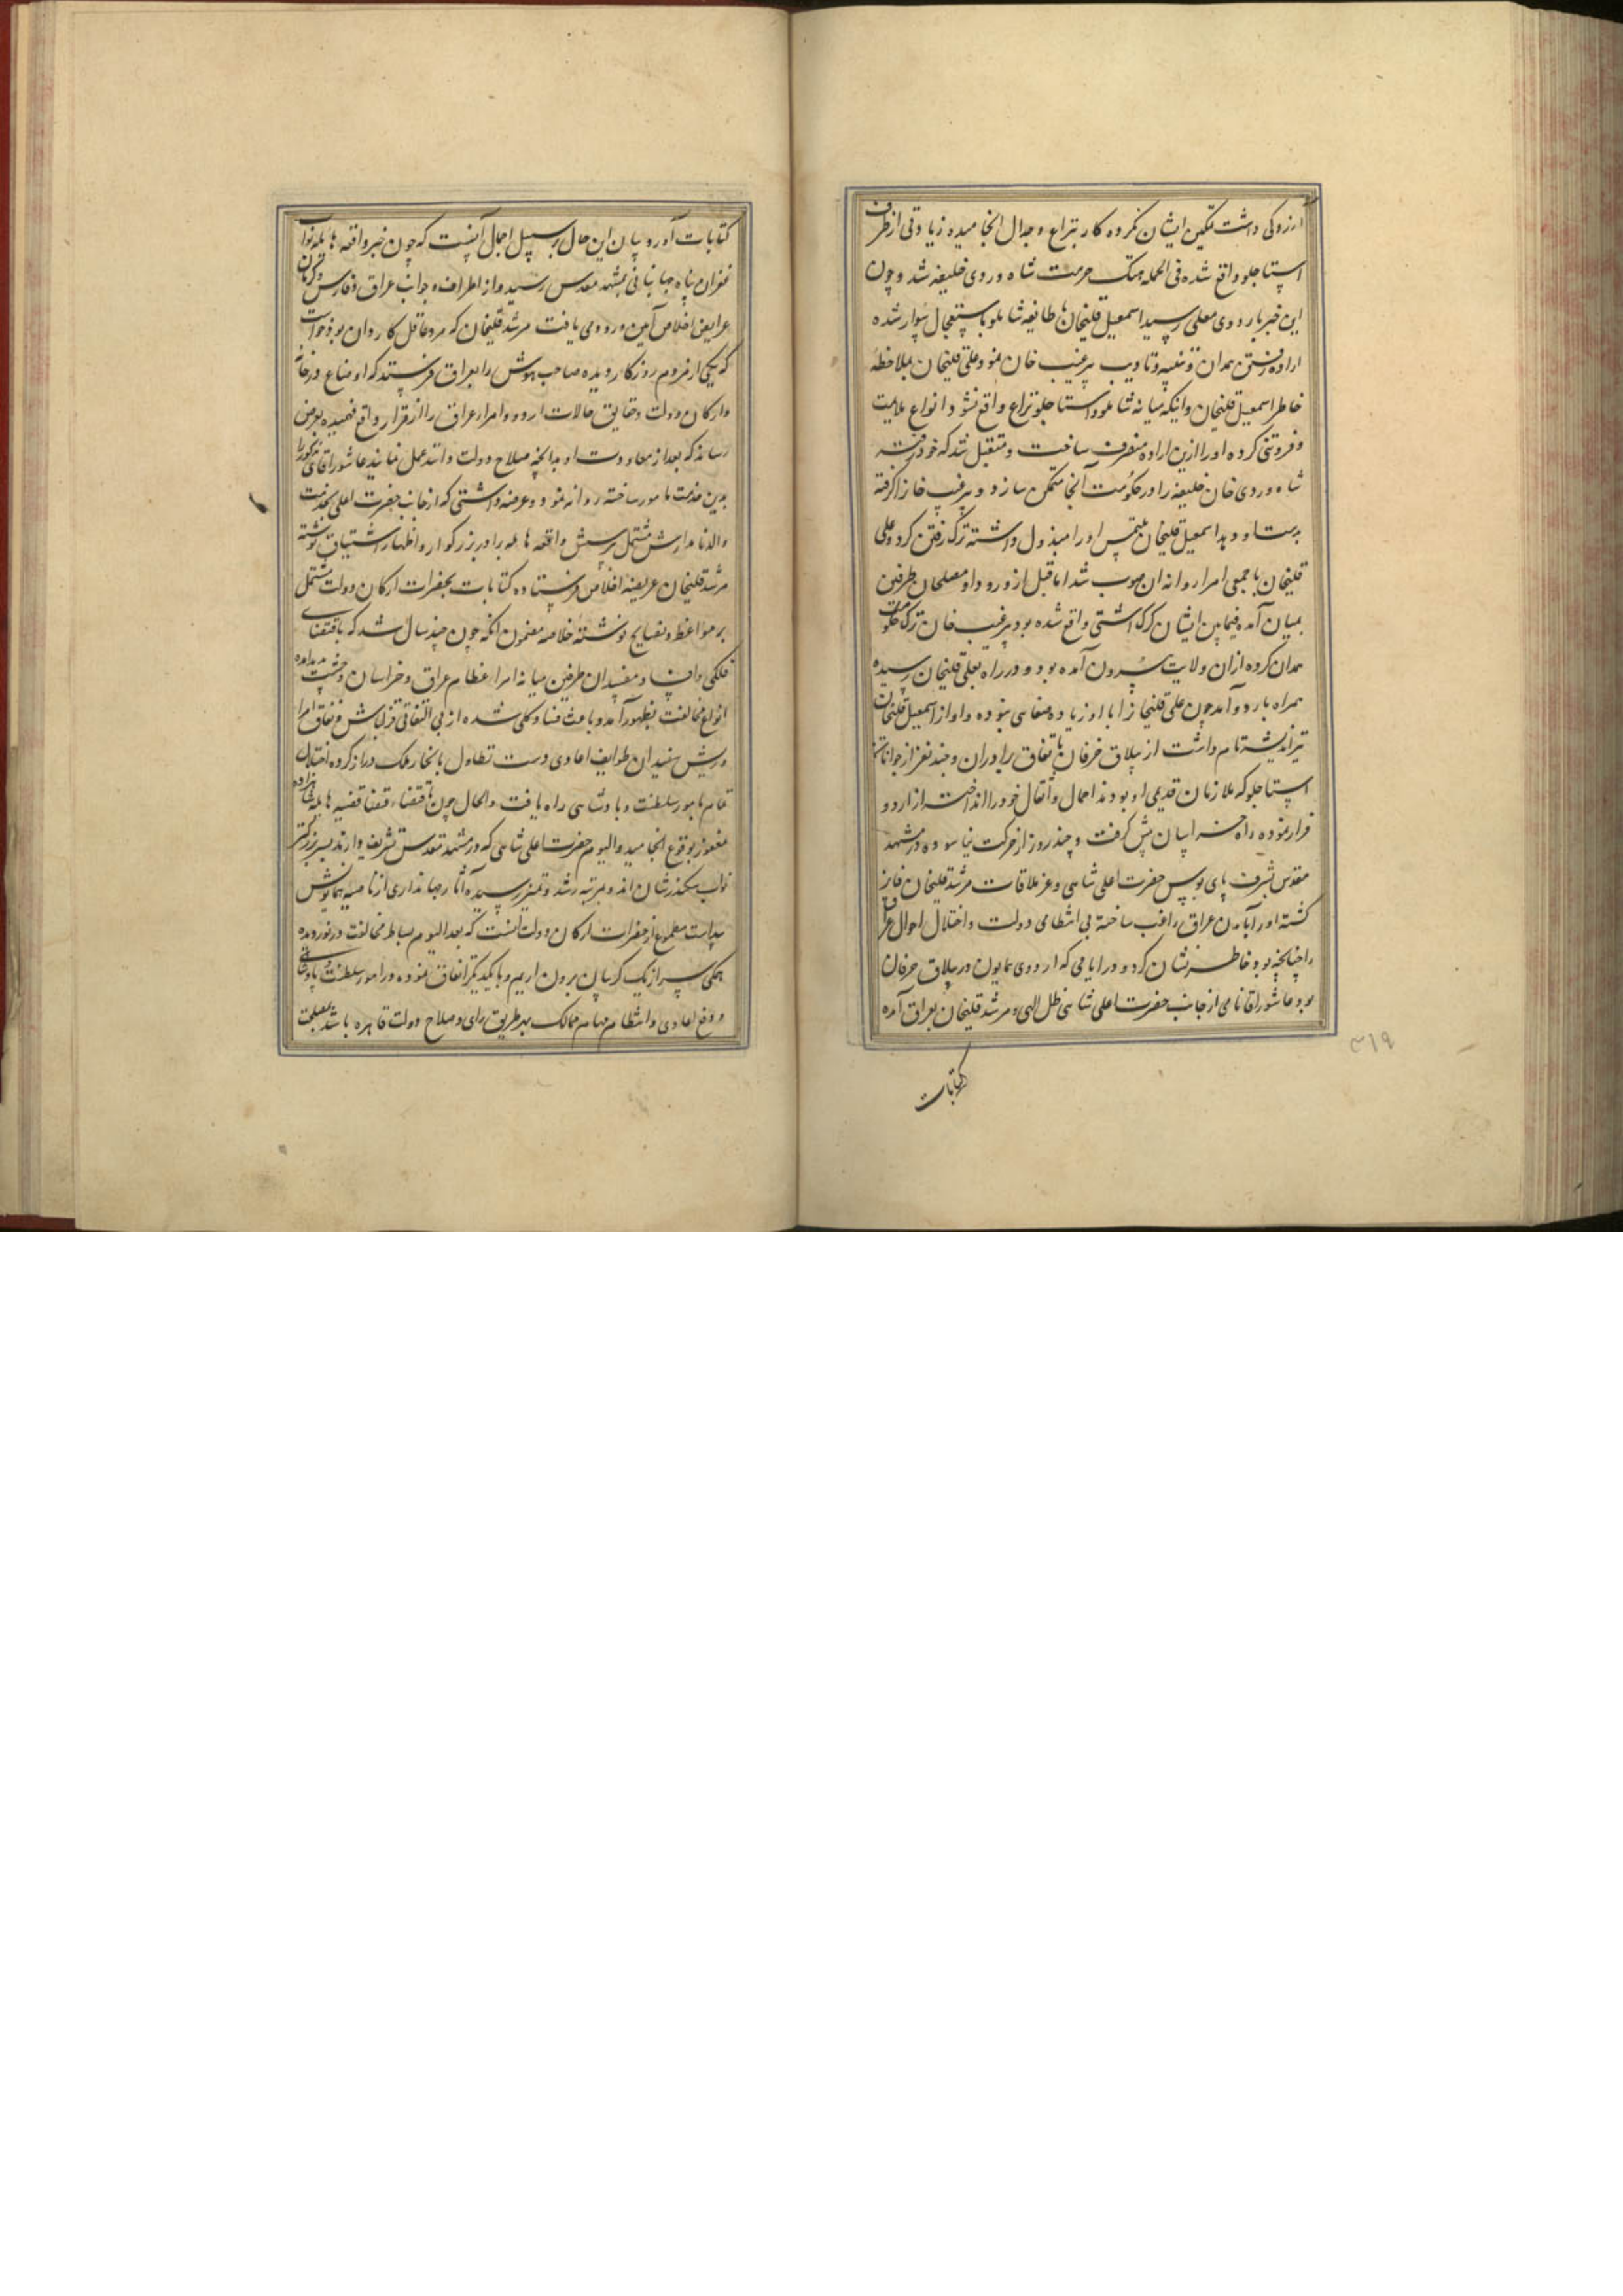 ارزوکی داشت تمکین ایشان نکرده کار بنزاع و جدال انجامیده زیادتی از طرف
استاجلو واقع شده فی الجمله هتک حرمت شاه وردی خلیفه شد و چون
این خبر باردوی معلی رسید اسمعیل قلیخان با طایفه شاملو باستعجال سوار شده
اراده رفتن همدان و تنبیه و تادیب پیرغیب خان نمود و علی قلیخان بملاحظه
خاطر اسمعیل قلیخان و اینکه میانه شاملو و استاجلو نزاع واقع نشود انواع ملایمت
و فروتنی کرده او را ازین اراده منصرف ساخت و متقبل شد که خود رفته
شاه وردی خان خلیفه را در حکومت آنجا متمکن سازد و پیرغیب خانرا گرفته
بدست او دهد اسمعیل قلیخان ملتمس او را مبذول داشته ترک رفتن کرد و علی
قلیخان با جمعی امرا روانه آن صوب شد اما قبل از ورود او مصلحان طرفین
بمیان آمده فیمابین ایشان کرک آشتی واقع شده بود پیرغیب خان ترک حکومت
همدان کرده ازان ولایت بیرون آمده بود و در راه بعلی قلیخان رسیده
همراه باردو آمد چون علی قلیخانرا با او زیاده صفایی نبوده و او از اسمعیل قلیخان
نیز اندیشه تمام داشت از ییلاق خرقان باتفاق برادران و چند نفر از جوانان
استاجلو که ملازمان قدیمی او بودند احمال و اثقال خود را انداخته از اردو
فرار نموده راه خراسان پیش گرفت و چند روز از حرکت نیاسوده در مشهد
مقدس بشرف پای بوس حضرت اعلی شاهی و عز ملاقات مرشد قلیخان فایز
گشته او را بآمدن عراق راغب ساخته بی انتظامی دولت و اختلال احوال عراق
را چنانچه بود خاطر نشان کرد و در ایامی که اردوی همایون در ییلاق خرقان
بود عاشور اقا نامی از جانب حضرت اعلی شاهی ظل الهی و مرشد قلیخان بعراق آمده
کتابات
۳۱۹
کتابات آورد بیان این حال بر سبیل اجمال آنست که چون خبر واقعه هایله نواب
غفران پناه جهانبانی بمشهد مقدس رسید و از اطراف و جوانب عراق و فارس و کرمان
عرایض اخلاص آمین ورود می یافت مرشد قلیخان که مرد عاقل کاردان بود خواست
که یکی از مردم روزگار دیده صاحب هوش را بعراق فرستد که اوضاع درخانه
و ارکان دولت و حقایق حالات اردو و امراء عراق را از قرار واقع فهمیده بعرض
رساند که بعد از معاودت او بدانچه صلاح دولت دانند عمل نمایند عاشور اقای مذکور را
بدین خدمت مامور ساخته روانه نمود و عرضه داشتی که از جانب حضرت اعلی بخدمت
والد نامدارش مشتمل بر پرسش واقعه هایله برادر بزرگوار و اظهار اشتیاق نوشته
مرشد قلیخان عریضه اخلاص فرستاده کتابات بحضرات ارکان دولت مشتمل
بر مواعظ و نصایح نوشته خلاصه مضمون آنکه چون چند سال شد که باقتضای
فلکی و افساد مفسدان طرفین میانه امراء عظام عراق و خراسان وحشت پدید آمده
انواع مخالفت بظهور آمد و باعث فساد کلی شده از بی اتفاقی قزلباش و نفاق امرا
و ریش سفیدان طوایف اعادی دست تطاول بانحاء ملک دراز کرده اختلال
تمام بامور سلطنت و پادشاهی راه یافت و الحال چون باقتضاء قضا قضیه هایله شاهزاده
مغفور بوقوع انجامید و الیوم حضرت اعلی شاهی که در مشهد مقدس تشریف دارند پسر بزرگتر
نواب سکندرشان اند و بمرتبه رشد و تمیز رسیده آثار جهانداری از ناصیه همایونش
پیداست مطموع از حضرات ارکان دولت آنست که بعد الیوم بساط مخالفت درنوردیده
همگی سر از یک گریبان برون اریم و با یکدیگر اتفاق نموده در امور سلطنت و پادشاهی
و دفع اعادی و انتظام مهام ممالک بهر طریق رای و صلاح دولت قاهره باشد بمصلحت